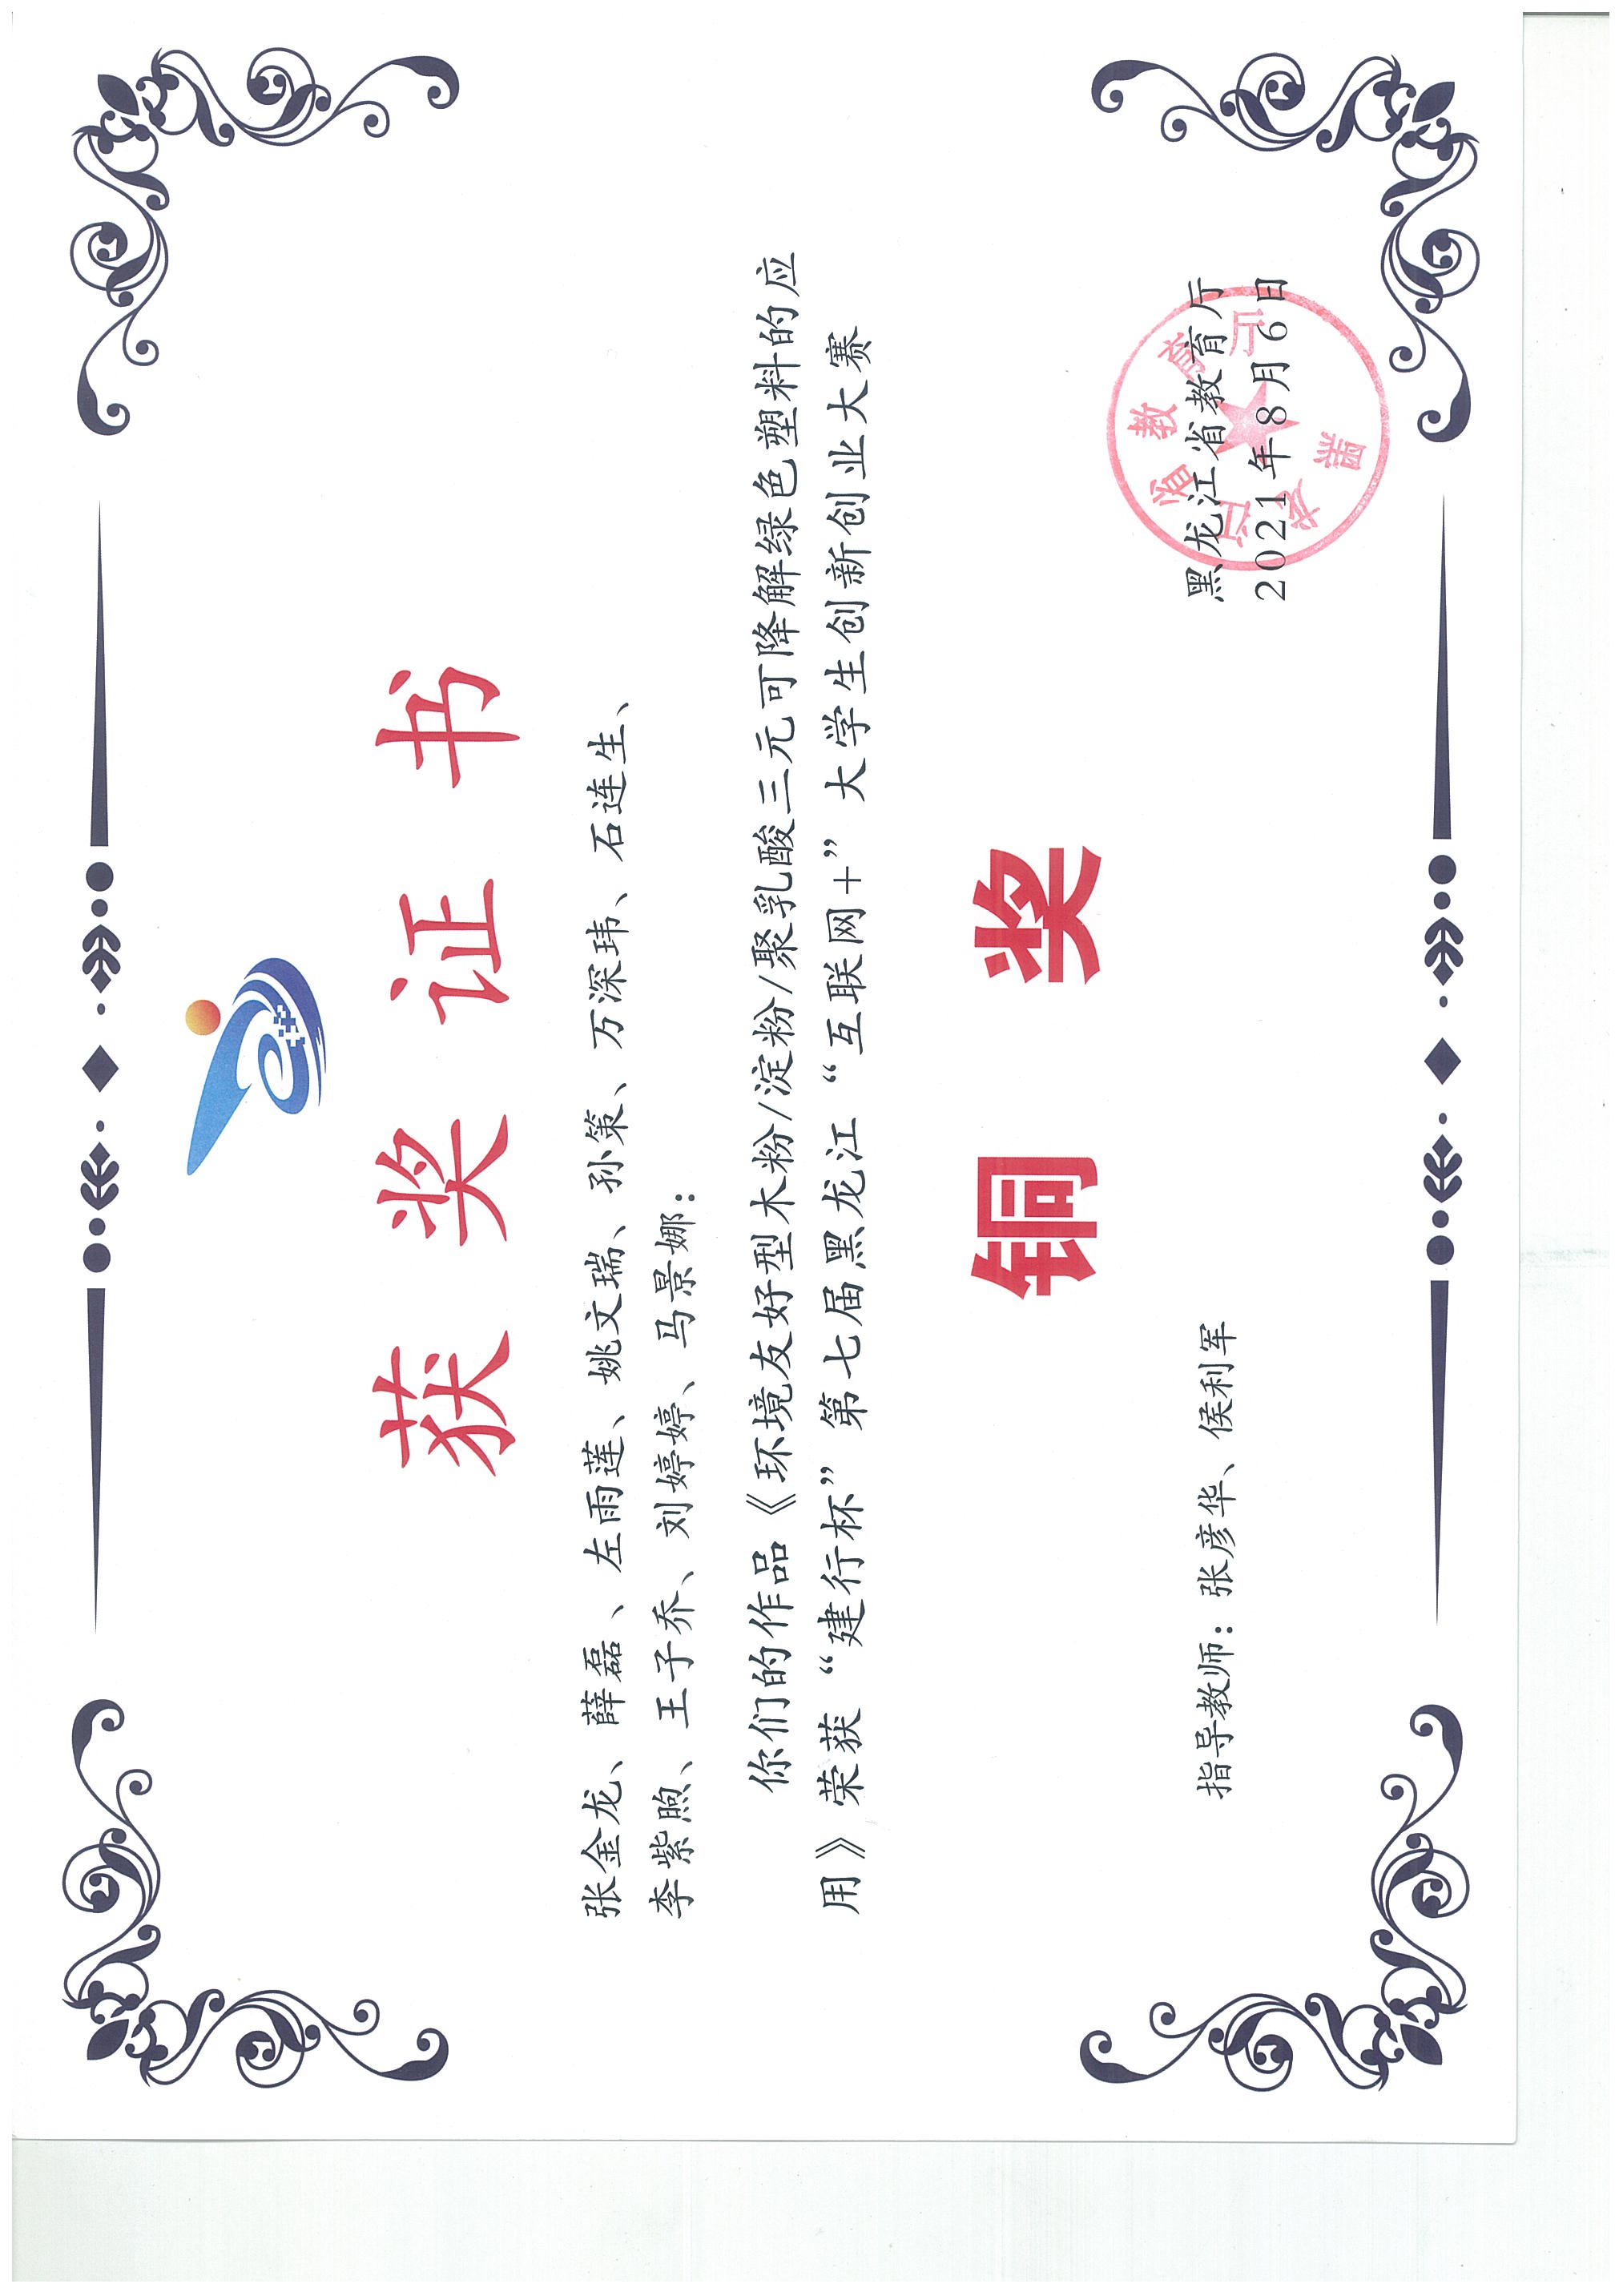 获奖证书
张金龙、薛磊、左雨莲、姚文瑞、孙策、万深玮、石连生、
李紫煦、王子乔、刘婷婷、马景娜：
你们的作品《环境友好型木粉/淀粉/聚乳酸三元可降解绿色塑料的应
用》荣获“建行杯”第七届黑龙江“互联网+”大学生创新创业大赛
铜奖
指导教师：张彦华、侯利军
黑龙江省教育厅
2021年8月6日
黑龙江省教育厅